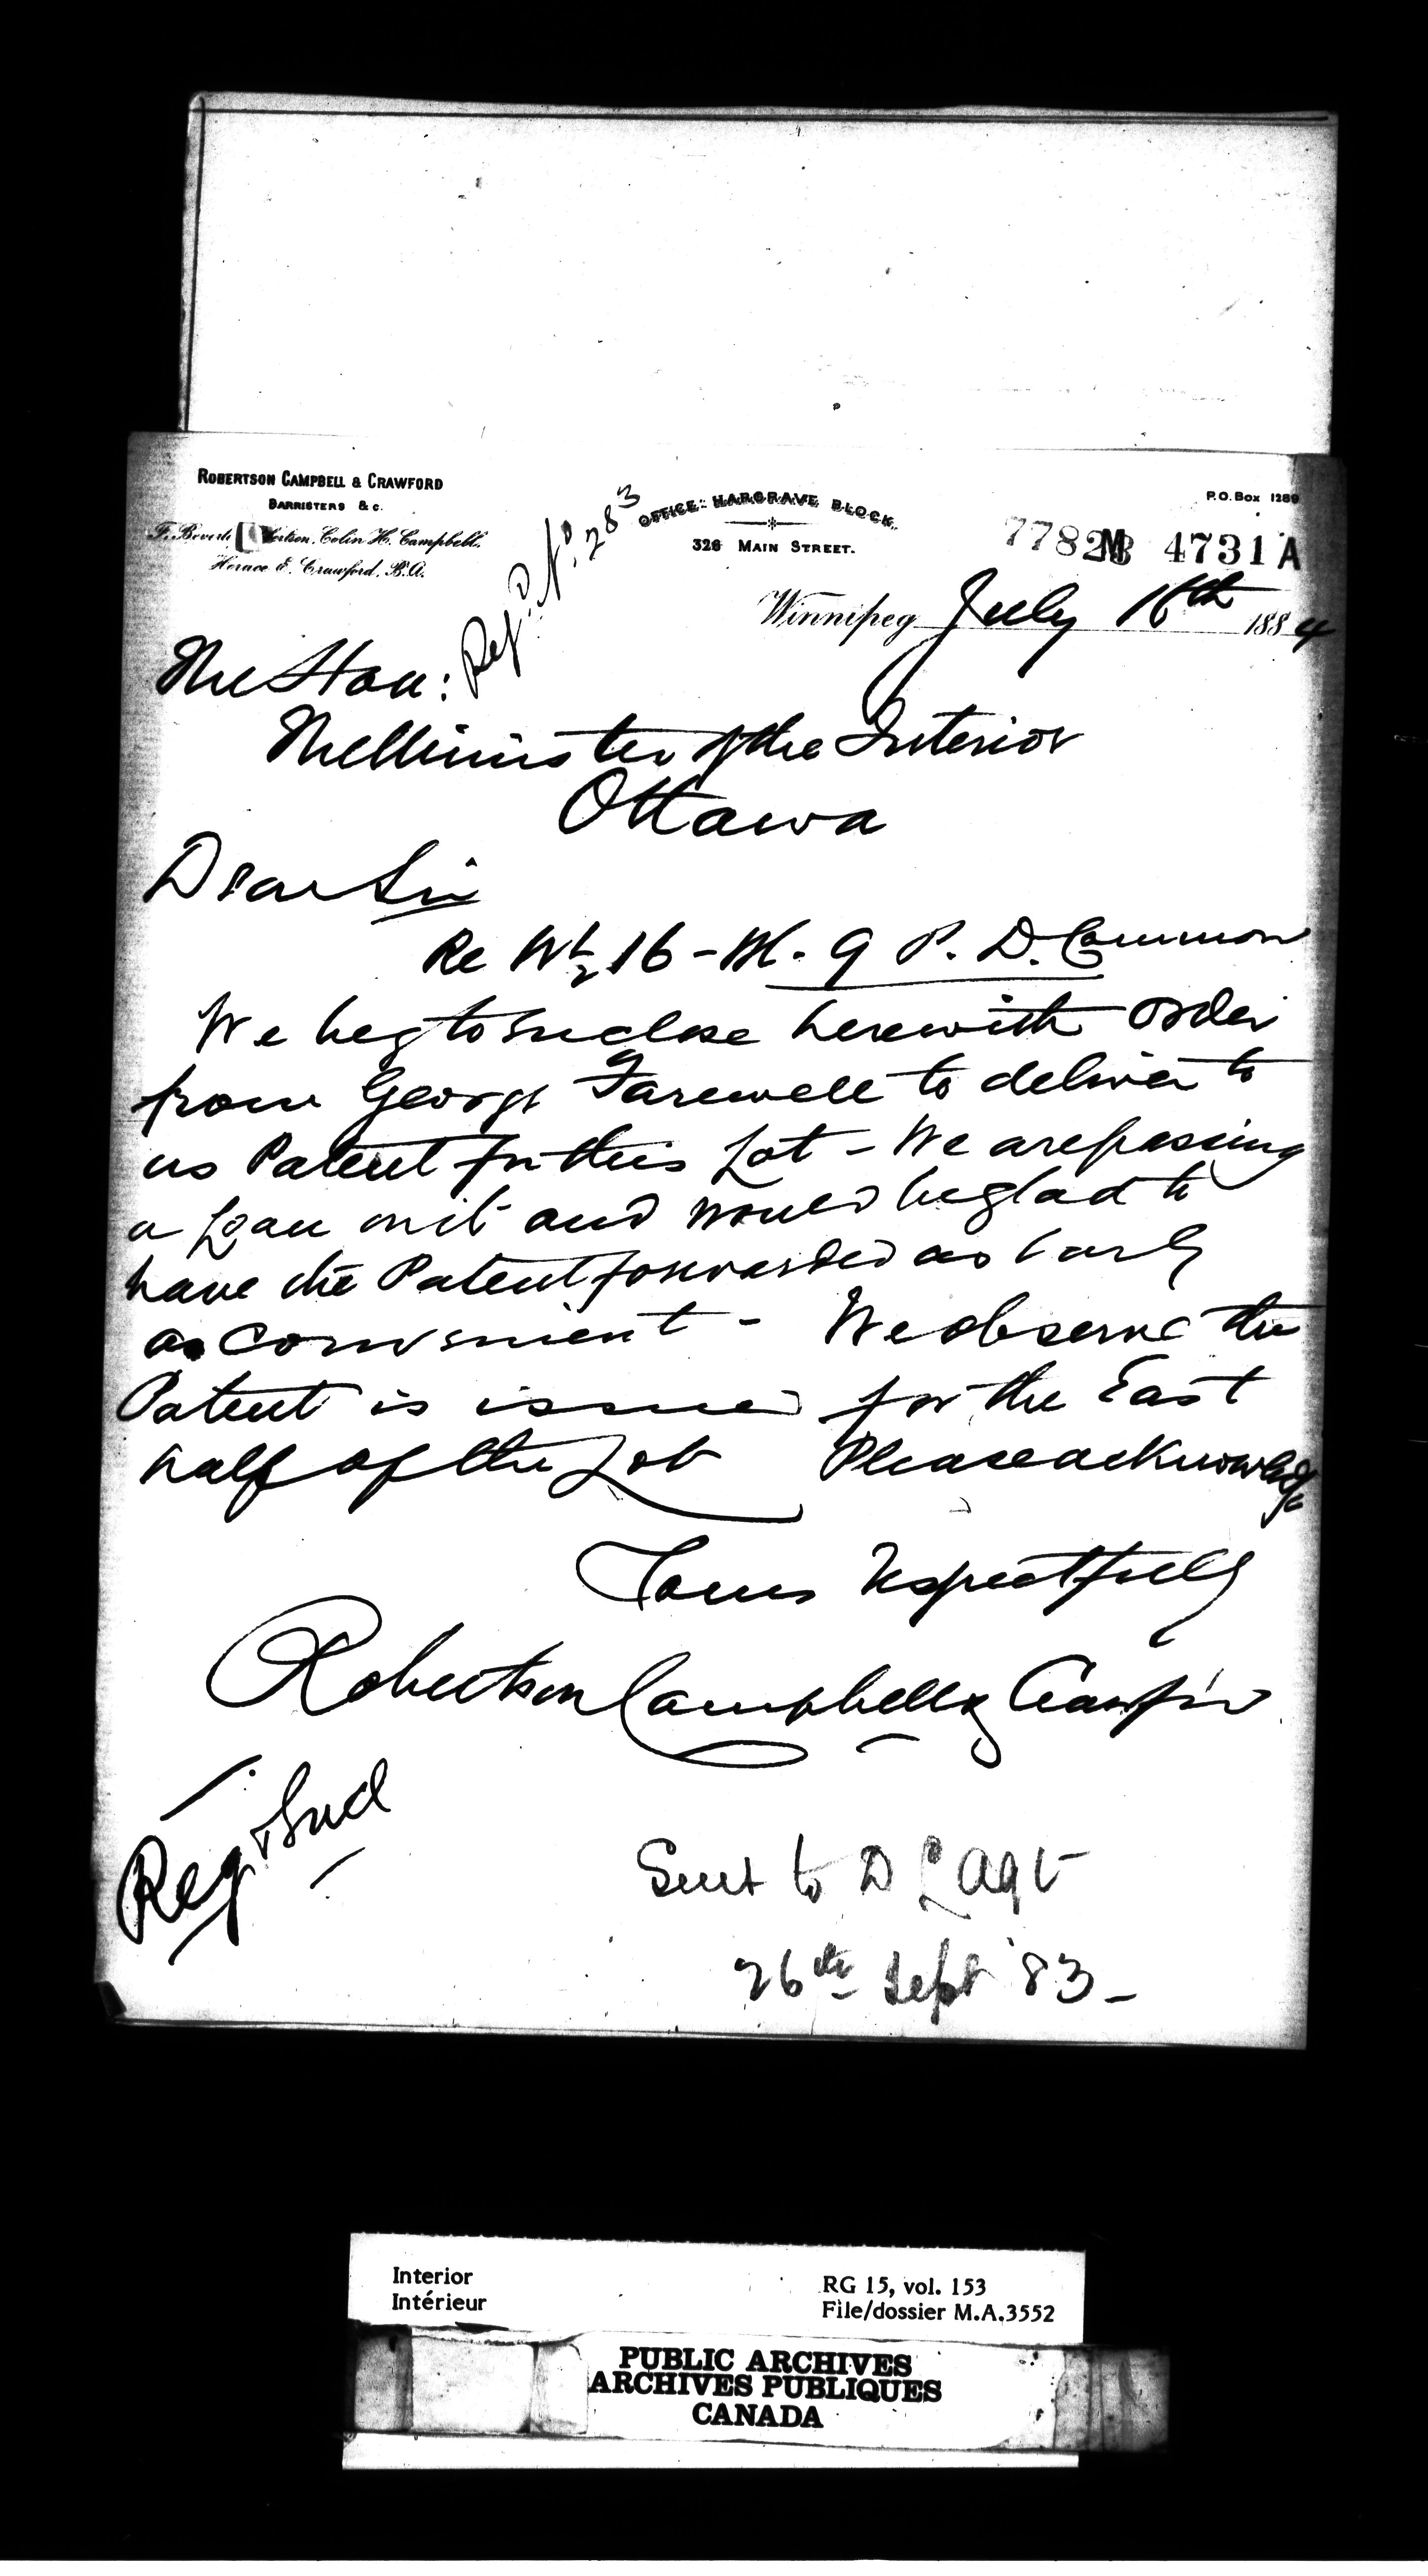 ROBERTSON CAMPBELL & CRAWFORD
BARRISTERS &c.
F. Beverly Robertson, Colin H. Campbell,
Horace E. Crawford, B.A.
Reg.d No. 283
OFFICE: HARGRAVE BLOCK.
326 MAIN STREET.
P.O. Box 1289
77823 M 4731 A
Winnipeg July 16th 1884
The Hon:
The Minister of the Interior
Ottawa
Dear Sir
Re W½ 16 - M. 9 P. D. Common
We beg to enclose herewith order
from George Farewell to deliver to
us Patent for this Lot - We are passing
a Loan on it and would be glad to
have the Patent forwarded as early
as convenient - We observe the
Patent is issued for the East
half of the Lot Please acknowledge
Yours respectfully
Robertson Campbell & Crawford
Reg & Encl
Sent to D L Agt
26th Sept '83 -
Interior
Intérieur
RG 15, vol. 153
File/dossier M.A.3552
PUBLIC ARCHIVES
ARCHIVES PUBLIQUES
CANADA